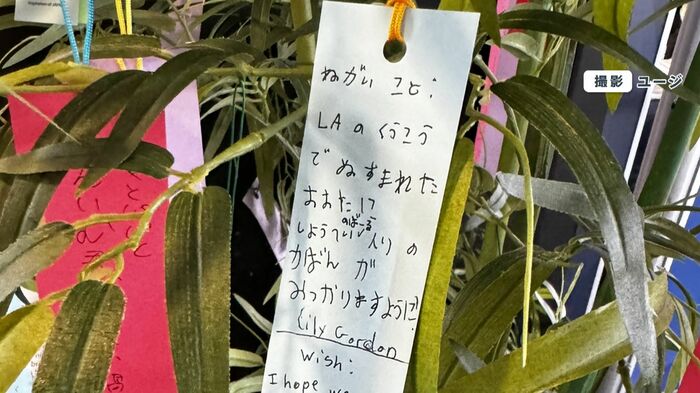 ねがい こと:
LAのくうこう
でぬすまれた
おおたに
のぼーる
しょうへい入りの
かばんが
みつかりますように!
Lily Gordon
Wish:
I hope
撮影 ユージ